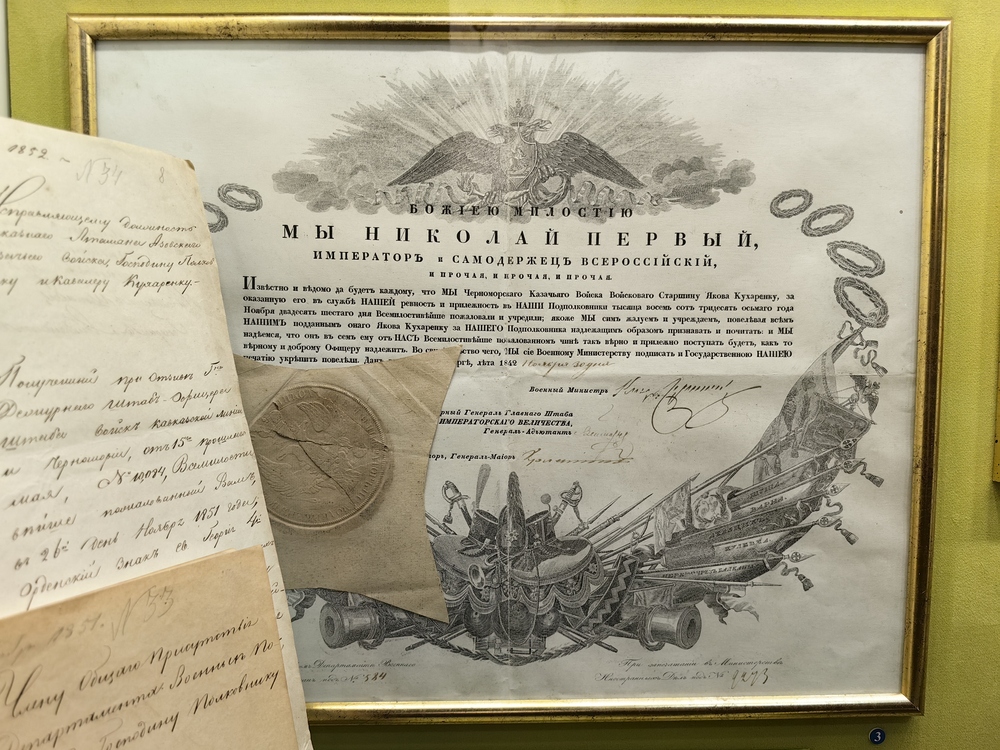 БОЖІЕЮ МИЛОСТІЮ
МЫ НИКОЛАЙ ПЕРВЫЙ,
ИМПЕРАТОРЪ и САМОДЕРЖЕЦЪ ВСЕРОССІЙСКІЙ,
И ПРОЧАЯ, И ПРОЧАЯ, И ПРОЧАЯ.
Извѣстно и вѣдомо да будетъ каждому, что МЫ Черноморскаго Казачьяго Войска Войсковаго Старшину Якова Кухаренку, за
оказанную его въ службѣ НАШЕЙ ревность и прилежность въ НАШИ Подполковники тысяча восемь сотъ тридесять осьмаго года
Ноября двадесять шестаго дня Всемилостивѣйше пожаловали и учредили; якоже МЫ симъ жалуемъ и учреждаемъ, повелѣвая всѣмъ
НАШИМЪ подданнымъ онаго Якова Кухаренку за НАШЕГО Подполковника надлежащимъ образомъ признавать и почитать: и МЫ
надѣемся, что онъ въ семъ ему отъ НАСЪ Всемилостивѣйше пожалованномъ чинѣ такъ вѣрно и прилежно поступать будетъ, какъ то
вѣрному и доброму Офицеру надлежитъ. Во свидѣтельство чего, МЫ сіе Военному Министерству подписать и Государственною НАШЕЮ
печатію укрѣпить повелѣли. Дан ргѣ, лѣта 1842 Ноября
Военный Министръ
рный Генералъ Главнаго Штаба
ИМПЕРАТОРСКАГО ВЕЛИЧЕСТВА,
Генералъ-Адъютантъ
оръ, Генералъ-Маіоръ
ВАРНА
КУЛЕВЧА
ПЕРЕХОДЪ ЧРЕЗЪ БАЛКАНЫ
Департаментѣ Военнаго
№ 584
При запечатаніи въ Министерствѣ
Иностранныхъ Дѣлъ подъ № 9273
1852
№ 34
8
Исправляющему Должность
Наказнаго Атамана Азовскаго
Казачьяго Войска, Господину Полков
нику и Кавалеру Кухаренку
Полученный при отзывѣ Гна
Дежурнаго Штабъ-Офицера
Штаба войскъ Кавказской линіи
и Черноморіи, отъ 15го прошлаго
мая, № 10074, Всемилости
вѣйше пожалованный Вамъ,
въ 26й день Ноября 1851 года,
Орденскій Знакъ св. Георгія 4й
1851.
№ 33
Члену Общаго Присутствія
Департамента Военныхъ По
Господину Полковнику
3